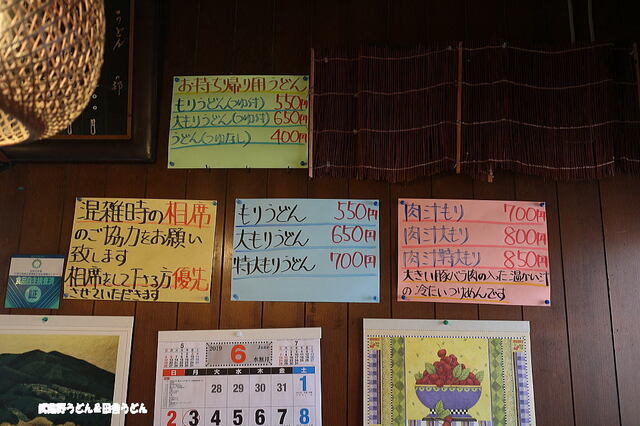 うどん
お持ち帰り用うどん
もりうどん(つゆ付) 550円
大もりうどん(つゆ付) 650円
うどん(つゆなし) 400円
混雑時の相席
のご協力をお願い
致します
相席をして下さる方優先
させていただきます
もりうどん 550円
大もりうどん 650円
特大もりうどん 700円
肉汁もり 700円
肉汁大もり 800円
肉汁特大もり 850円
大きい豚バラ肉の入った温かい汁
の冷たいつけめんです
証
2019 6 June
水無月
5 7
日 月 火 水 木 金 土
28 29 30 31 1
2 3 4 5 6 7 8
武蔵野うどん&田舎うどん